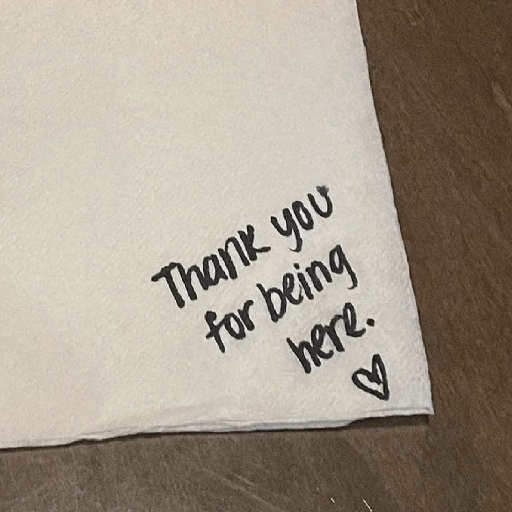 Thank you
for being
here.